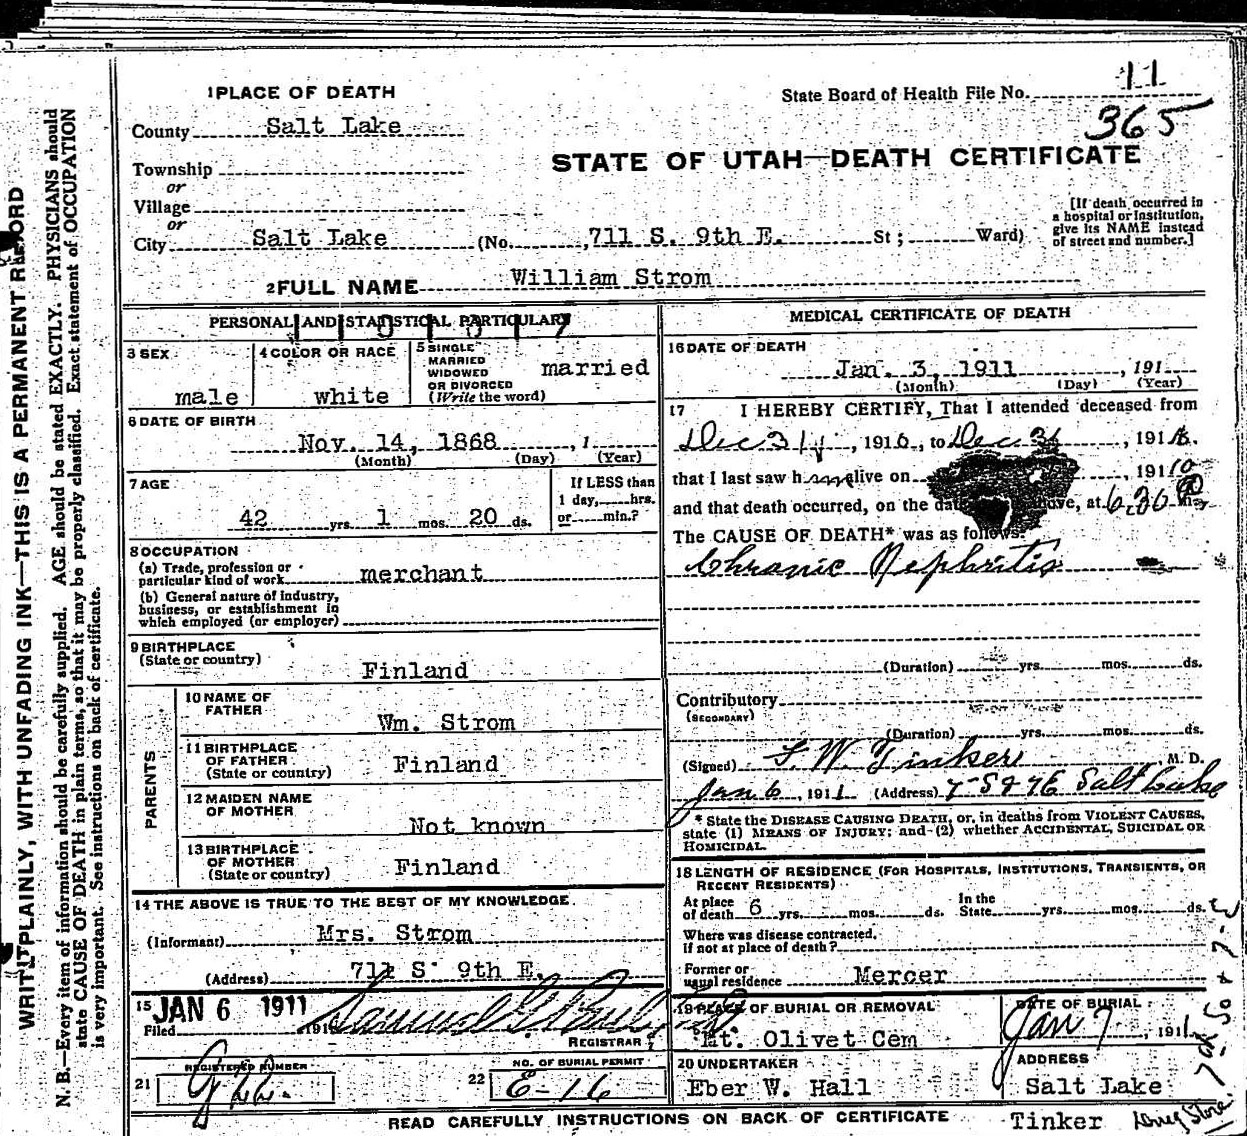 WRITE PLAINLY, WITH UNFADING INK—THIS IS A PERMANENT RECORD
N. B.—Every item of information should be carefully supplied. AGE should be stated EXACTLY. PHYSICIANS should
state CAUSE OF DEATH in plain terms, so that it may be properly classified. Exact statement of OCCUPATION
is very important. See instructions on back of certificate.
State Board of Health File No. 11
365
STATE OF UTAH—DEATH CERTIFICATE
1 PLACE OF DEATH
County Salt Lake
Township
or
Village
or
City Salt Lake (No. 711 S. 9th E. St ; Ward)
[If death occurred in
a hospital or institution,
give its NAME instead
of street and number.]
2 FULL NAME William Strom
PERSONAL AND STATISTICAL PARTICULARS
3 SEX male
4 COLOR OR RACE white
5 SINGLE
MARRIED
WIDOWED
OR DIVORCED
(Write the word) married
6 DATE OF BIRTH
Nov. 14, 1868, 1
(Month) (Day) (Year)
7 AGE
42 yrs 1 mos. 20 ds.
If LESS than
1 day, hrs.
or min.?
8 OCCUPATION
(a) Trade, profession or
particular kind of work merchant
(b) General nature of industry,
business, or establishment in
which employed (or employer)
9 BIRTHPLACE
(State or country) Finland
PARENTS
10 NAME OF
FATHER Wm. Strom
11 BIRTHPLACE
OF FATHER
(State or country) Finland
12 MAIDEN NAME
OF MOTHER Not known
13 BIRTHPLACE
OF MOTHER
(State or country) Finland
14 THE ABOVE IS TRUE TO THE BEST OF MY KNOWLEDGE.
(Informant) Mrs. Strom
(Address) 711 S 9th E.
15 JAN 6 1911
Filed 191
REGISTRAR
REGISTERED NUMBER
21
NO. OF BURIAL PERMIT
22 E-16
MEDICAL CERTIFICATE OF DEATH
16 DATE OF DEATH
Jan. 3, 1911, 191
(Month) (Day) (Year)
17 I HEREBY CERTIFY, That I attended deceased from
Dec 31, 1910, to Dec 31, 191
that I last saw h alive on , 1910
and that death occurred, on the date above, at 6.30
The CAUSE OF DEATH* was as follows:
Chronic Nephritis
(Duration) yrs. mos. ds.
Contributory
(SECONDARY)
(Duration) yrs. mos. ds.
(Signed) F. W. Tinker M. D.
Jan 6, 1911 (Address) Salt Lake
* State the DISEASE CAUSING DEATH, or, in deaths from VIOLENT CAUSES,
state (1) MEANS OF INJURY; and (2) whether ACCIDENTAL, SUICIDAL OR
HOMICIDAL.
18 LENGTH OF RESIDENCE (FOR HOSPITALS, INSTITUTIONS, TRANSIENTS, OR
RECENT RESIDENTS)
At place
of death 6 yrs. mos. ds.
In the
State yrs. mos. ds.
Where was disease contracted,
if not at place of death?
Former or
usual residence Mercer
19 PLACE OF BURIAL OR REMOVAL
Mt. Olivet Cem
DATE OF BURIAL
Jan 7, 1911
20 UNDERTAKER
Eber W. Hall
ADDRESS
Salt Lake
READ CAREFULLY INSTRUCTIONS ON BACK OF CERTIFICATE
Tinker Drug Store.